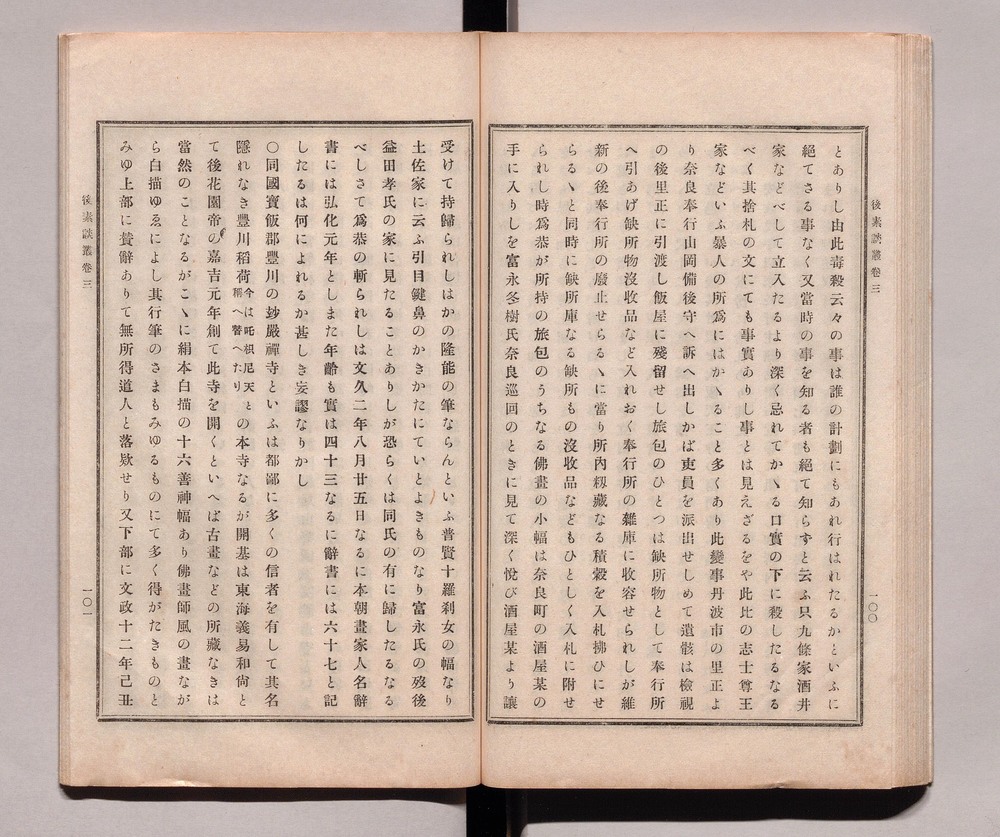 後素談叢卷三
一〇〇
とありし由此毒殺云々の事は誰の計劃にもあれ行はれたるかといふに
絕てさる事なく又當時の事を知る者も絕て知らずと云ふ只九條家酒井
家などべして立入たるより深く忌れてかゝる口實の下に殺したるなる
べく其捨札の文にても事實ありし事とは見えざるをや此比の志士尊王
家などいふ暴人の所爲にはかゝること多くあり此變事丹波市の里正よ
り奈良奉行山岡備後守へ訴へ出しかば吏員を派出せしめて遺骸は檢視
の後里正に引渡し飯屋に殘留せし旅包のひとつは缺所物として奉行所
へ引あげ缺所物沒收品など入れおく奉行所の雜庫に收容せられしが維
新の後奉行所の廢止せらるゝに當り所內籾藏なる積穀を入札拂ひにせ
らるゝと同時に缺所庫なる缺所もの沒收品などもひとしく入札に附せ
られし時爲恭が所持の旅包のうちなる佛畫の小幅は奈良町の酒屋某の
手に入りしを富永冬樹氏奈良巡回のときに見て深く悅び酒屋某より讓
受けて持歸られしはかの隆能の筆ならんといふ普賢十羅刹女の幅なり
土佐家に云ふ引目鍵鼻のかきかたにていとよきものなり富永氏の歿後
益田孝氏の家に見たることありしが恐らくは同氏の有に歸したるなる
べしさて爲恭の斬られしは文久二年八月廿五日なるに本朝畫家人名辭
書には弘化元年としまた年齡も實は四十三なるに辭書には六十七と記
したるは何によれるか甚しき妄謬なりかし
〇同國寶飯郡豐川の玅嚴禪寺といふは都鄙に多くの信者を有して其名
隱れなき豐川稻荷今は吒枳尼天稱へ替へたりとの本寺なるが開基は東海義易和尙と
て後花園帝の嘉吉元年創て此寺を開くといへば古畫などの所藏なきは
當然のことなるがこゝに絹本白描の十六善神幅あり佛畫師風の畫なが
ら白描ゆゑによし其行筆のさまもみゆるものにて多く得がたきものと
みゆ上部に贊辭ありて無所得道人と落欵せり又下部に文政十二年己丑
後素談叢卷三
一〇一